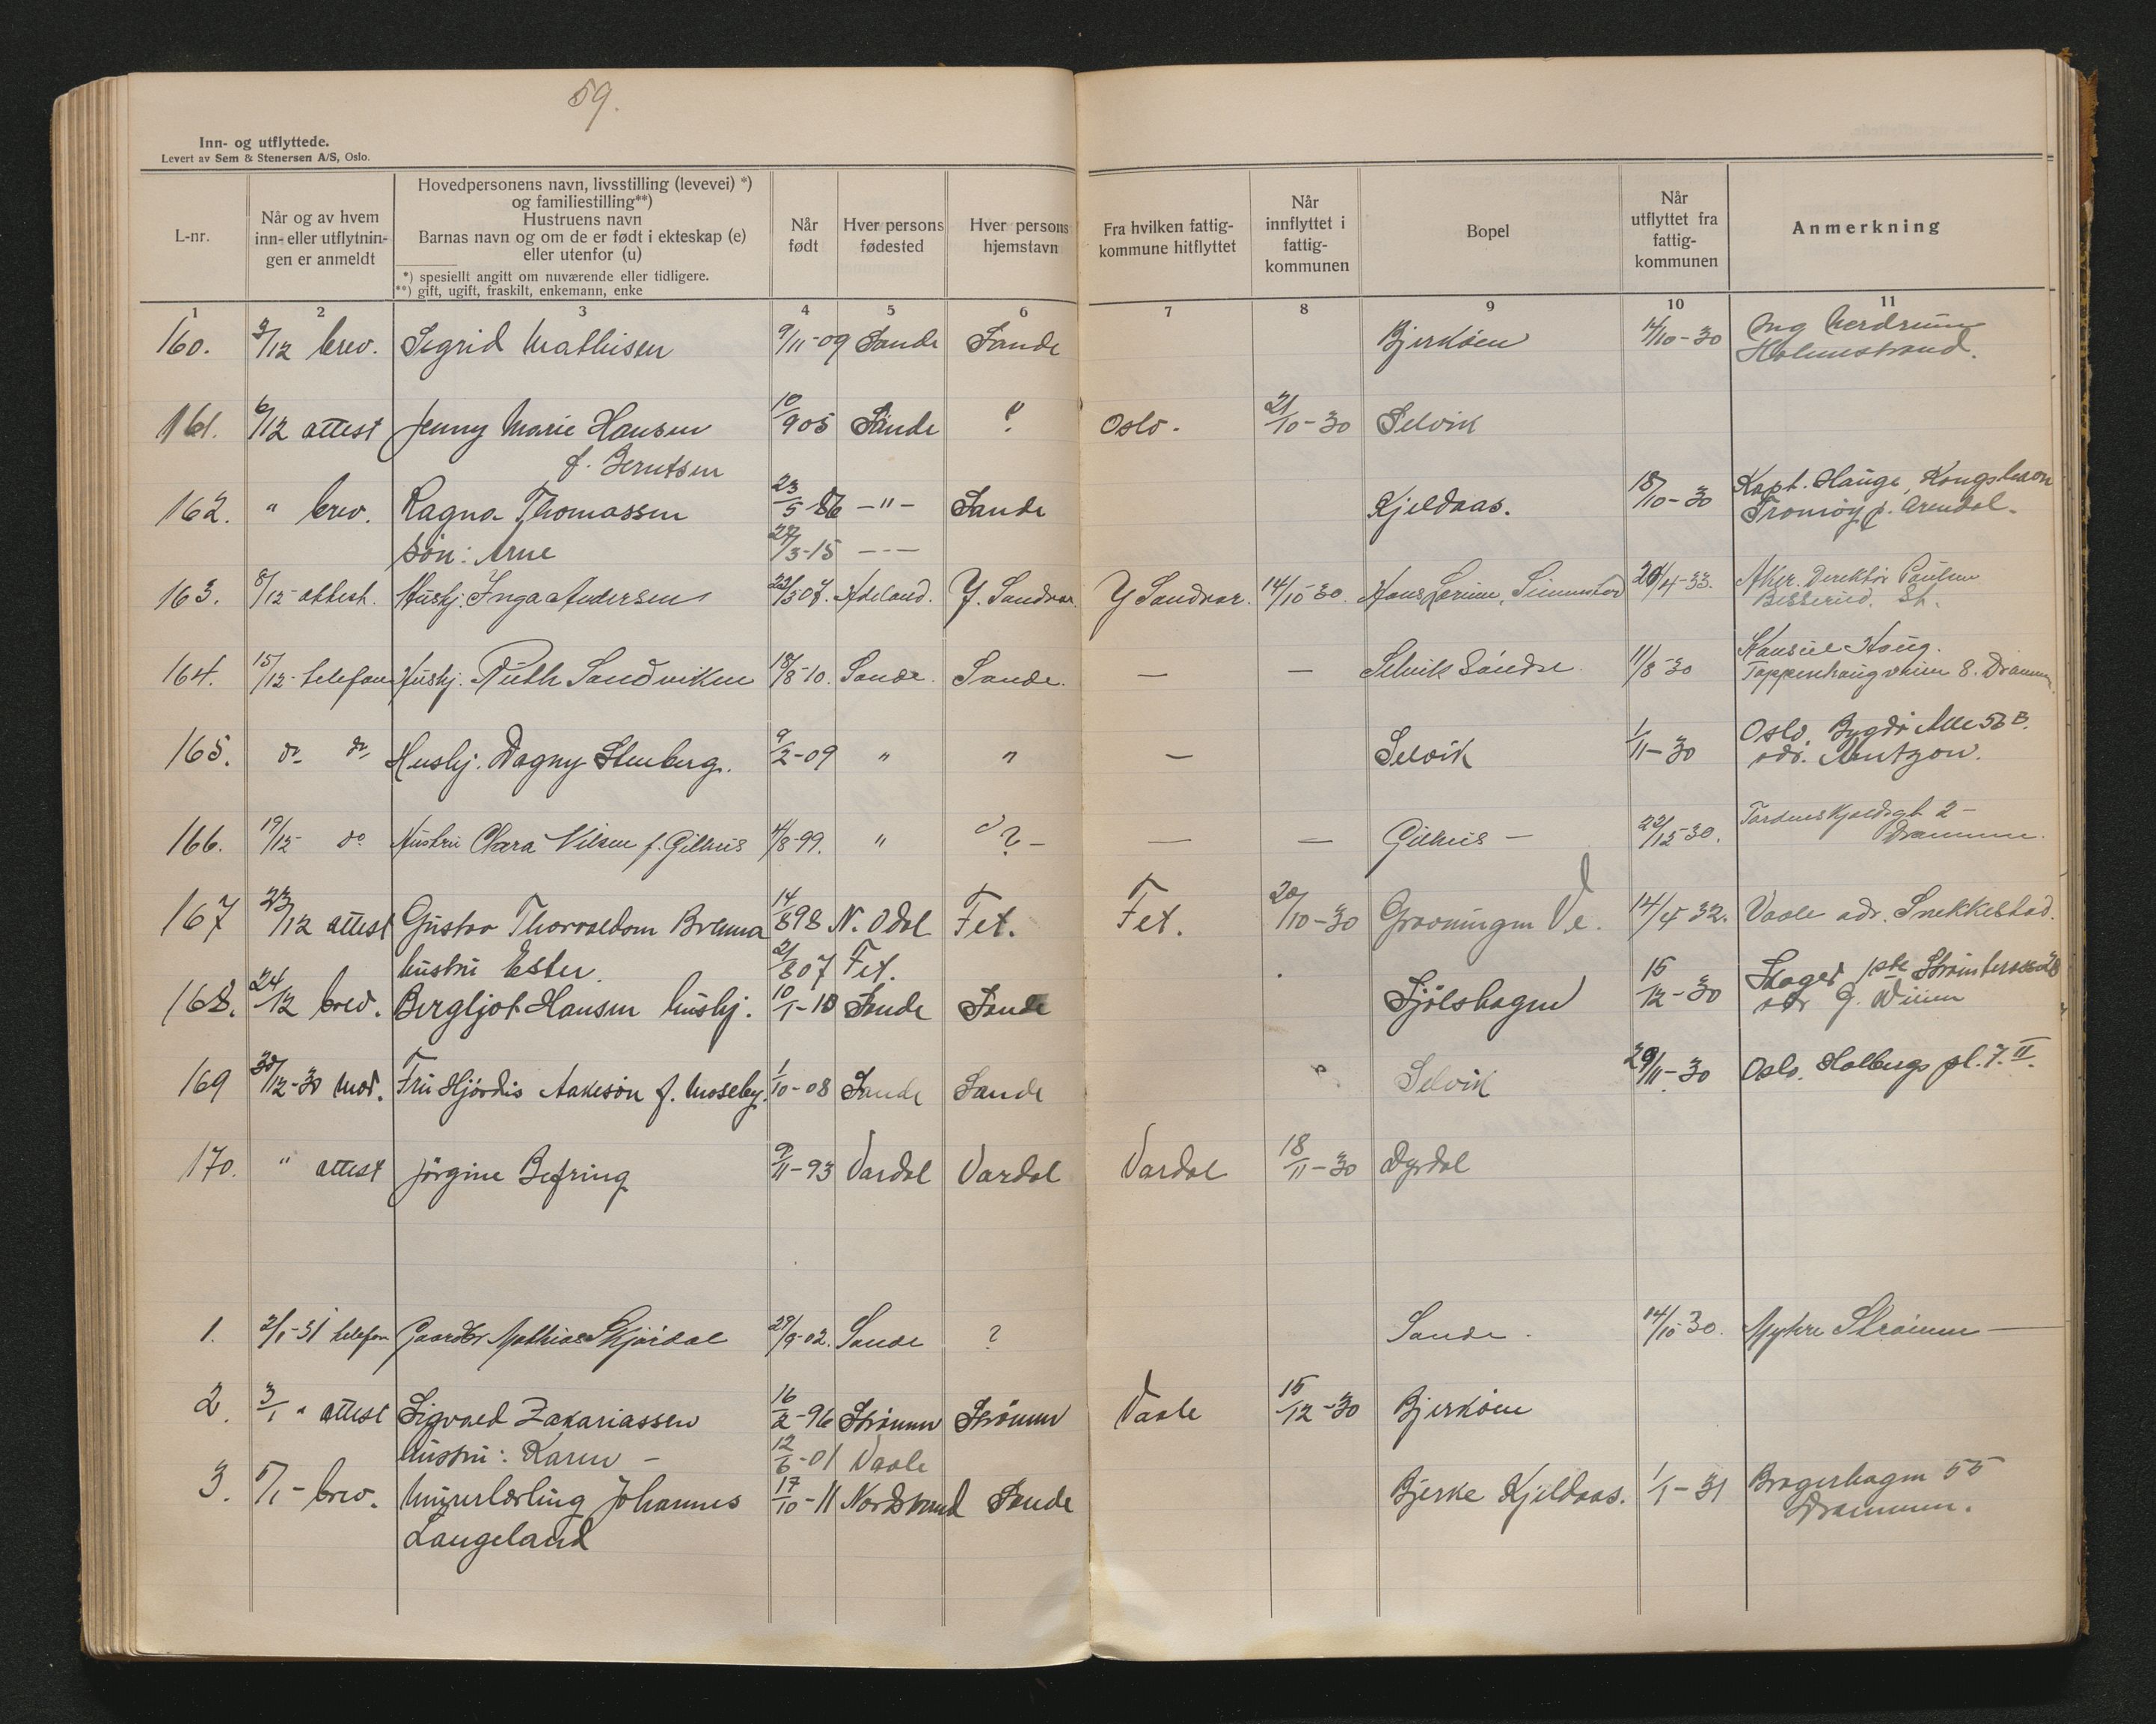 59.
Inn- og utflyttede.
Levert av Sem & Stenersen A/S, Oslo.
L-nr.
Når og av hvem
inn- eller utflytnin-
gen er anmeldt
Hovedpersonens navn, livsstilling (levevei) *)
og familiestilling**)
Hustruens navn
Barnas navn og om de er født i ekteskap (e)
eller utenfor (u)
*) spesiellt angitt om nuværende eller tidligere.
**) gift, ugift, fraskilt, enkemann, enke
Når
født
Hver persons
fødested
Hver persons
hjemstavn
Fra hvilken fattig-
kommune hitflyttet
Når
innflyttet i
fattig-
kommunen
Bopel
Når
utflyttet fra
fattig-
kommunen
Anmerkning
1 2 3 4 5 6 7 8 9 10 11
160. 3/12 brev. Sigrid Mathisen 9/11-09 Sande Sande Bjerköen 14/10-30 Ing Nerdrum
Holmestrand.
161. 6/12 attest Jenny Marie Hansen 10/905 Sande ? Oslo. 21/10-30 Selvik
f. Berntsen
162. " brev. Ragna Thomassen 23/5-86 -"- Sande Kjeldaas. 18/10-30 Kapt. Hauge, Kongshavn
sön: Arne 27/3-15 -"- Tromöy p. Arendal.
163. 8/12 attest. Hushj. Inga Andersen 22/507. Y. Sandvar Y Sandvar. 14/10-30. Hans 20/4-33. Aker. Direktör Paulsen
St.
164. 15/12- telefon Hushj. Ruth Sandviken 18/8-10. Sande. Sande. — — Selvik Söndre 11/8-30 Konsul Haug.
8. Drammen.
165. do do Hushj. Dagny Stenberg. 9/2-09 " " — Selvik 1/11-30 Oslo, Bygdö Alle 56 B.
adr. Arntzon.
166. 19/12- do Hustru Clara Nilsen f. Gilhus 4/8-99. " ?- — — Gilhus — 22/12-30. Tordenskjoldsgt 2-
Drammen.
167 23/12 attest Gustav Thorvaldsen Brenna 14/898 N. Odal Fet. Fet. 20/10-30 Grövningen V.e. 14/4 32. Vaale adr. Snekkestad.
hustru Ester. 21/807 Fet.
168. 24/12 brev. Bergljot Hansen hushj. 10/1-10 Sande Sande Fjölshagen 15/12-30 Skoger
adr G.
169 30/12-30 Mod. Fru Hjördis Aakesön f. Moseby. 1/10-08 Sande Sande " Selvik 29/11-30 Oslo. Holbergs pl. 7. II.
170. " attest Jörgine Befring 9/11-93 Vardal Vardal Vardal 18/11-30 Dyrdal
1. 2/1-31 telefon Gaardbr Mathias Skjördal 29/9-02. Sande ? Sande. 14/10 30. Myhre Strömm —
2. 3/1 " attest Sigvald Zakariassen 16/2-96 Strömm Strömm Vaale 15/12-30 Bjerköen
hustru: Karen - 12/6-01 Vaale
3. 5/1- brev. Murerlærling Johannes 17/10-11 Nordstrand Sande Bjerke Kjeldaas. 1/1-31 Bragerhagen 55
Langeland Drammen.